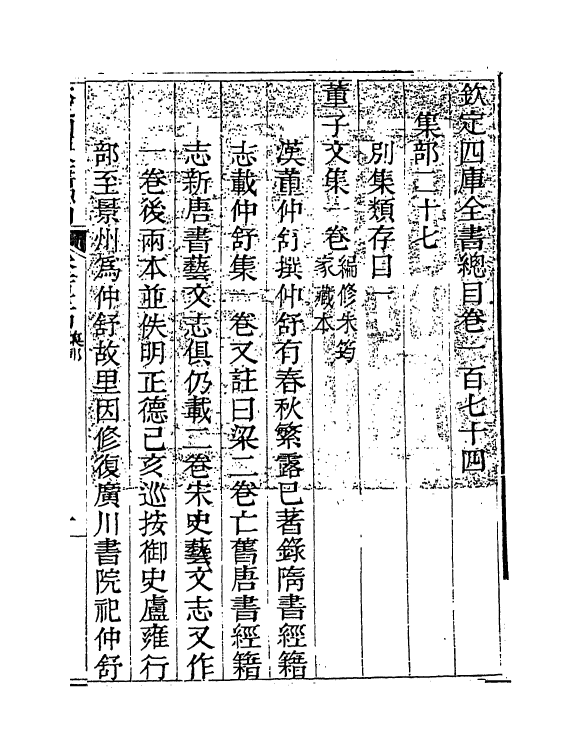 欽定四庫全書總目卷一百七十四
集部二十七
別集類存目一
董子文集一卷編修朱筠
家藏本
漢董仲舒撰仲舒有春秋繁露已著錄隋書經籍
志載仲舒集一卷又註曰梁二卷亡舊唐書經籍
志新唐書藝文志俱仍載二卷宋史藝文志又作
一卷後兩本並佚明正德己亥巡按御史盧雍行
部至景州爲仲舒故里因修復廣川書院祀仲舒